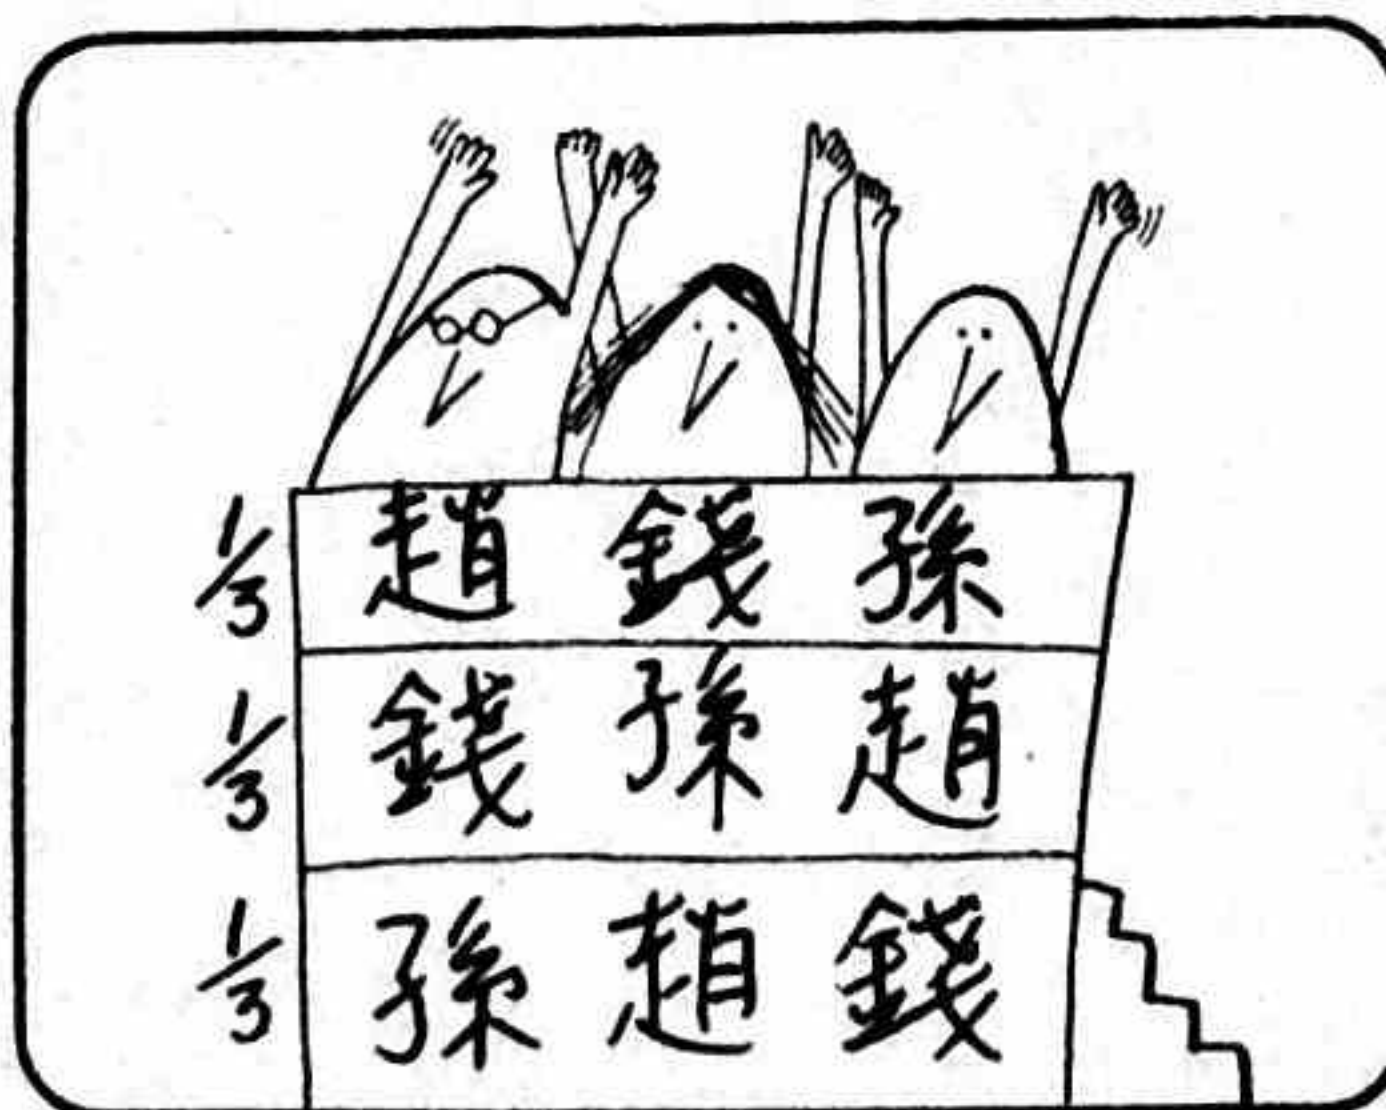 1/3 趙 錢 孫
1/3 錢 孫 趙
1/3 孫 趙 錢